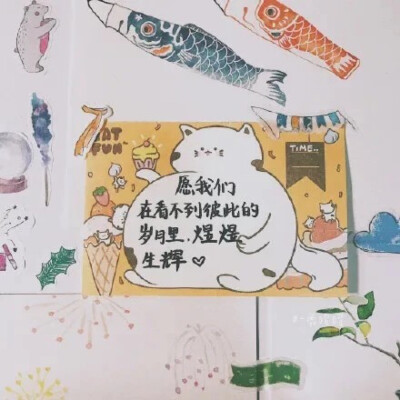 EAT
FUN
TIME..
愿我们
在看不到彼此的
岁月里，煜煜
生辉♡